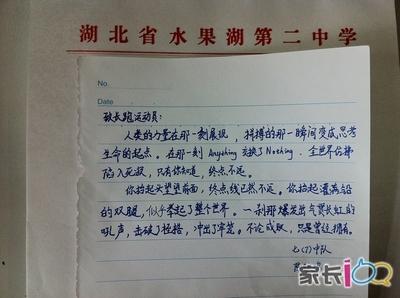 湖北省水果湖第二中学
No.
Date
致长跑运动员:
人类的力量在那一刻展现，拼搏的那一瞬间变成思考
生命的起点。在那一刻 Anything 变换了 Nothing. 全世界仿佛
陷入死寂，只有你知道，终点不远。
你抬起头望望前面，终点线已然不远。你抬起灌满铅
的双腿，似乎举起了整个世界。一刹那爆发出气贯长虹的
吼声，击破了桎梏，冲出了牢笼。不论成败，只是曾经拥有。
七(7)中队
家长100